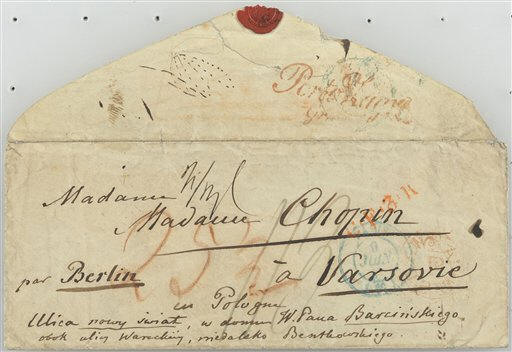 Madame
Madame Chopin
par Berlin
à Varsovie
en Pologne
Ulica nowy świat, w domu W. Pana Barcińskiego.
obok ulicy Wareckiej, niedaleko Bentkowskiego.